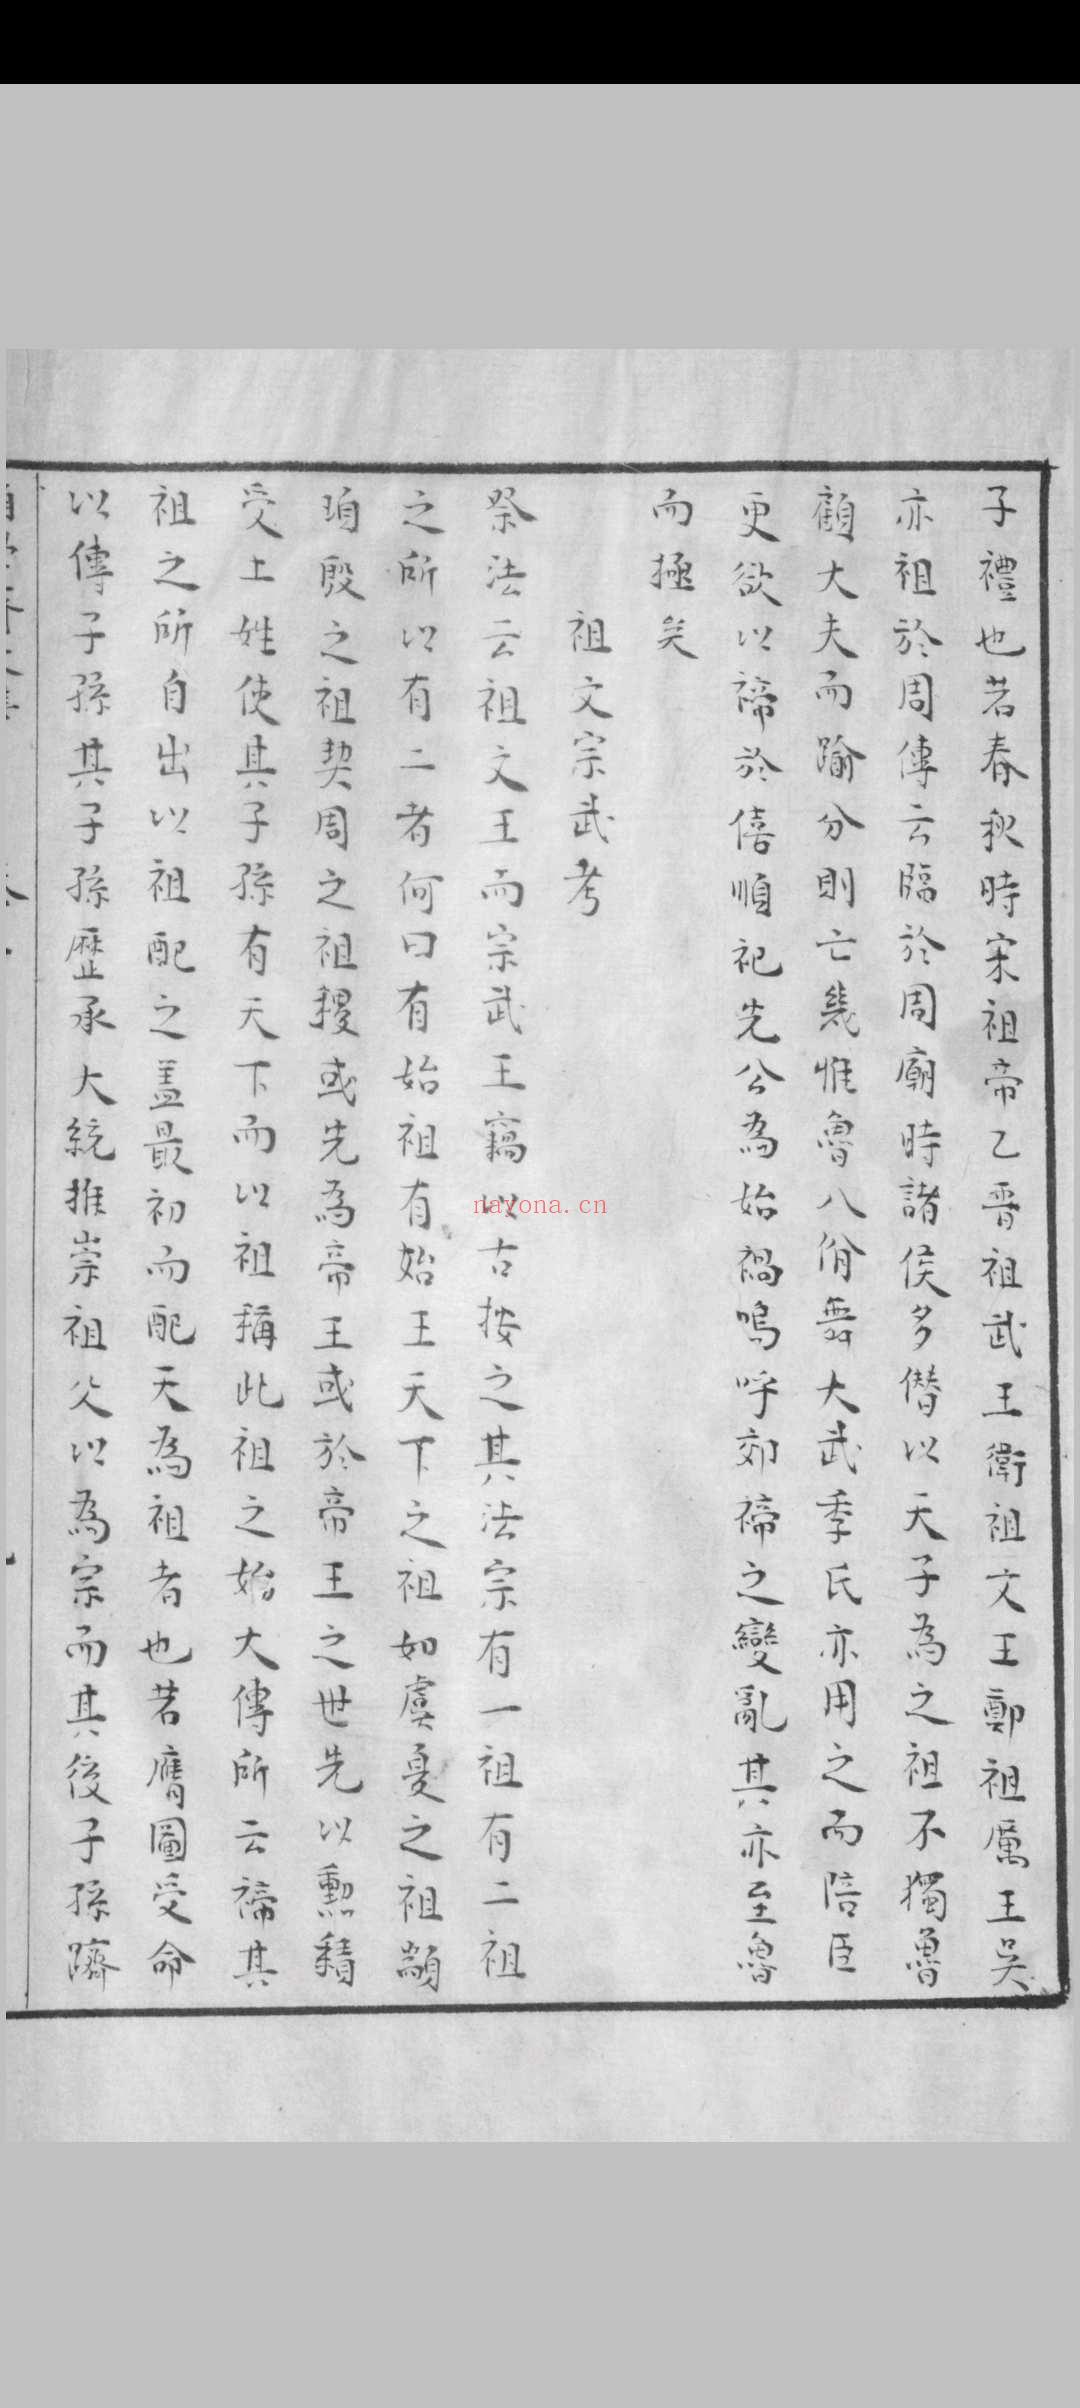 子禮也若春秋時宋祖帝乙晋祖武王衛祖文王鄭祖厲王吳
亦祖於周傳云臨於周廟時諸侯多僭以天子為之祖不獨魯
顧大夫而踰分則亡幾惟魯八佾舞大武季氏亦用之而陪臣
更欲以禘於僖順祀先公為始禍嗚呼郊禘之變亂其亦至魯
而極矣
祖文宗武考
祭法云祖文王而宗武王竊以古按之其法宗有一祖有二祖
之所以有二者何曰有始祖有始王天下之祖如虞夏之祖顓
頊殷之祖契周之祖稷或先為帝王或於帝王之世先以勲積
受土姓使其子孫有天下而以祖稱此祖之始大傳所云禘其
祖之所自出以祖配之盖最初而配天為祖者也若膺圖受命
以傳子孫其子孫歷承大統推崇祖父以為宗而其後子孫躋
nayona.cn